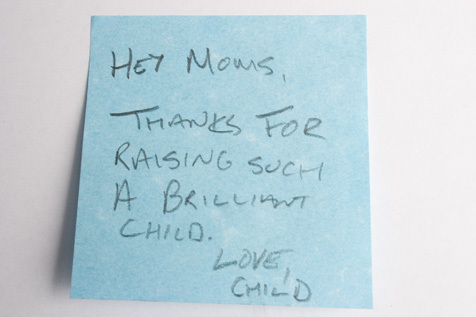 HEY MOMS,
THANKS FOR
RAISING SUCH
A BRILLIANT
CHILD.
LOVE,
CHILD